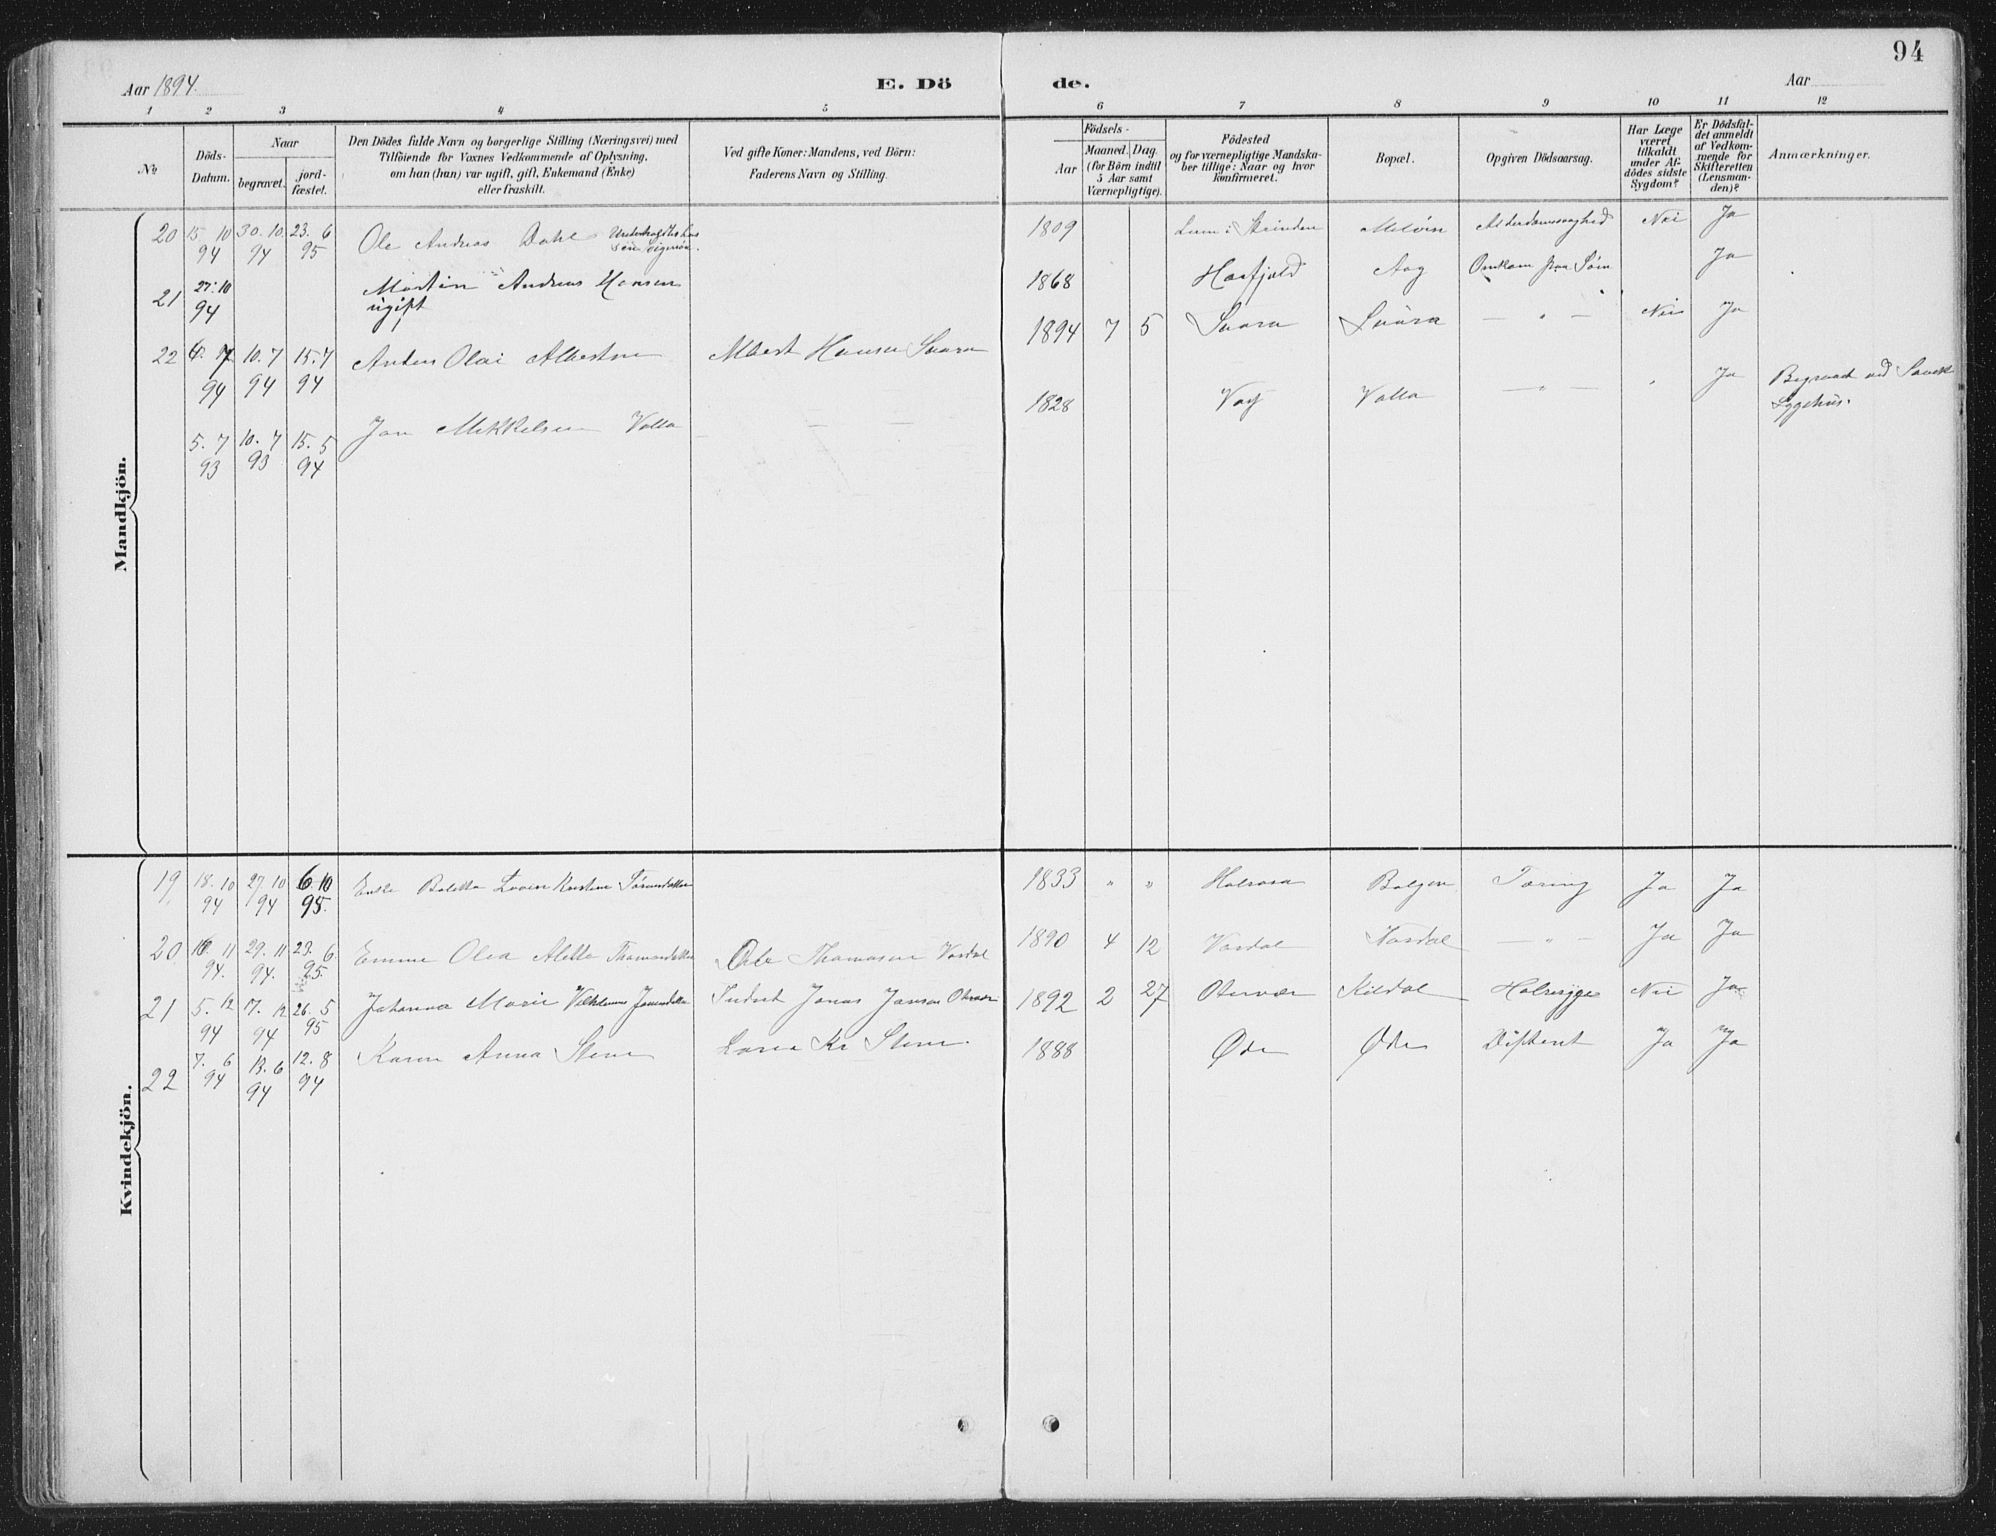 94
Aar 1894.
E. Dö
de.
Aar
1 2 3 4 5 6 7 8 9 10 11 12
No
Döds-
Datum.
Naar
begravet.
jord-
fæstet.
Den Dödes fulde Navn og borgerlige Stilling (Næringsvei) med
Tilföiende for Voxnes Vedkommende af Oplysning,
om han (hun) var ugift, gift, Enkemand (Enke)
eller fraskilt.
Ved gifte Koner: Mandens, ved Börn:
Faderens Navn og Stilling.
Födsels-
Aar
Maaned. Dag.
(for Börn indtil
5 Aar samt
Værnepligtige).
Födested
og for værnepligtige Mandska-
ber tillige: Naar og hvor
konfirmeret.
Bopæl.
Opgiven Dödsaarsag.
Har Læge
været
tilkaldt
under Af-
dödes sidste
Sygdom?
Er Dödsfal-
det anmeldt
af Vedkom-
mende for
Skifteretten
(Lensman-
den)?
Anmærkninger.
Mandkjön.
20 15. 10 94 30. 10. 94 23. 6 95 Ole Andreas Dahl 1809 Alderdomssvaghed Nei Ja
21 27. 10 94 Martin Andreas Hansen ugift 1868 Haafjeld Aag Omkom paa Søen Ja
22 6. 7 94 10. 7 94 15. 7 94 Anders Olai Albertsen Albert Hansen Svara 1894 7 5 Svara Svara — " — Nei Ja
5. 7 93 10. 7 93 15. 5 94 Jon Mikkelsen Valla 1828 Valla — " — " Ja Begravet ved
Sygehus.
Kvindekjön.
19 18. 10 94 27. 10 94 6. 10 95. Enke Boletta Kristine 1833 " " Bolgen Tæring Ja Ja
20 16. 11 94. 29. 11 94. 23. 6. 95. Emma Olea Aletta Thomasdatter Ole Thomassen Vasdal 1890 4 12 Vasdal Vasdal — " — Ja Ja
21 5. 12 94 17. 12 94 26. 5 95 Johanna Marie Jonas Jonsen 1892 2 27 Otervær Kildal Halssyge Nei Ja
22 7. 6 94 13. 6 94 12. 8 94 Karen Anna Stene Kr Stene. 1888 Øde Øde Difterit Ja Ja